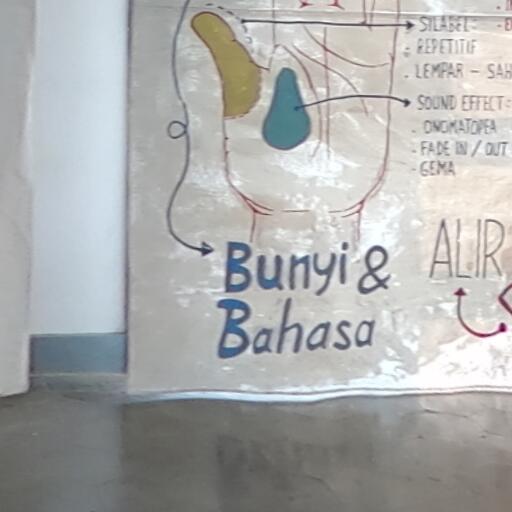 SILABEL:
- REPETITIF
. LEMPAR - SAH
SOUND EFFECT:
. ONOMATOPEA
- FADE IN / OUT
- GEMA
Bunyi &
Bahasa
ALIR